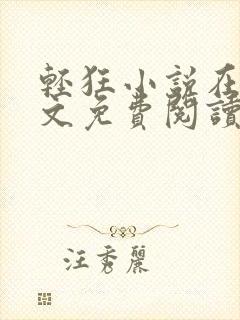 輕狂小說在
文免費閱讀
汪秀麗